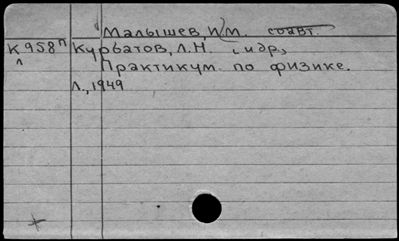 Малышев, К.М. соавт.
К958п Курбатов, Л.Н. и др,
л Практикум по физике.
Л., 1949